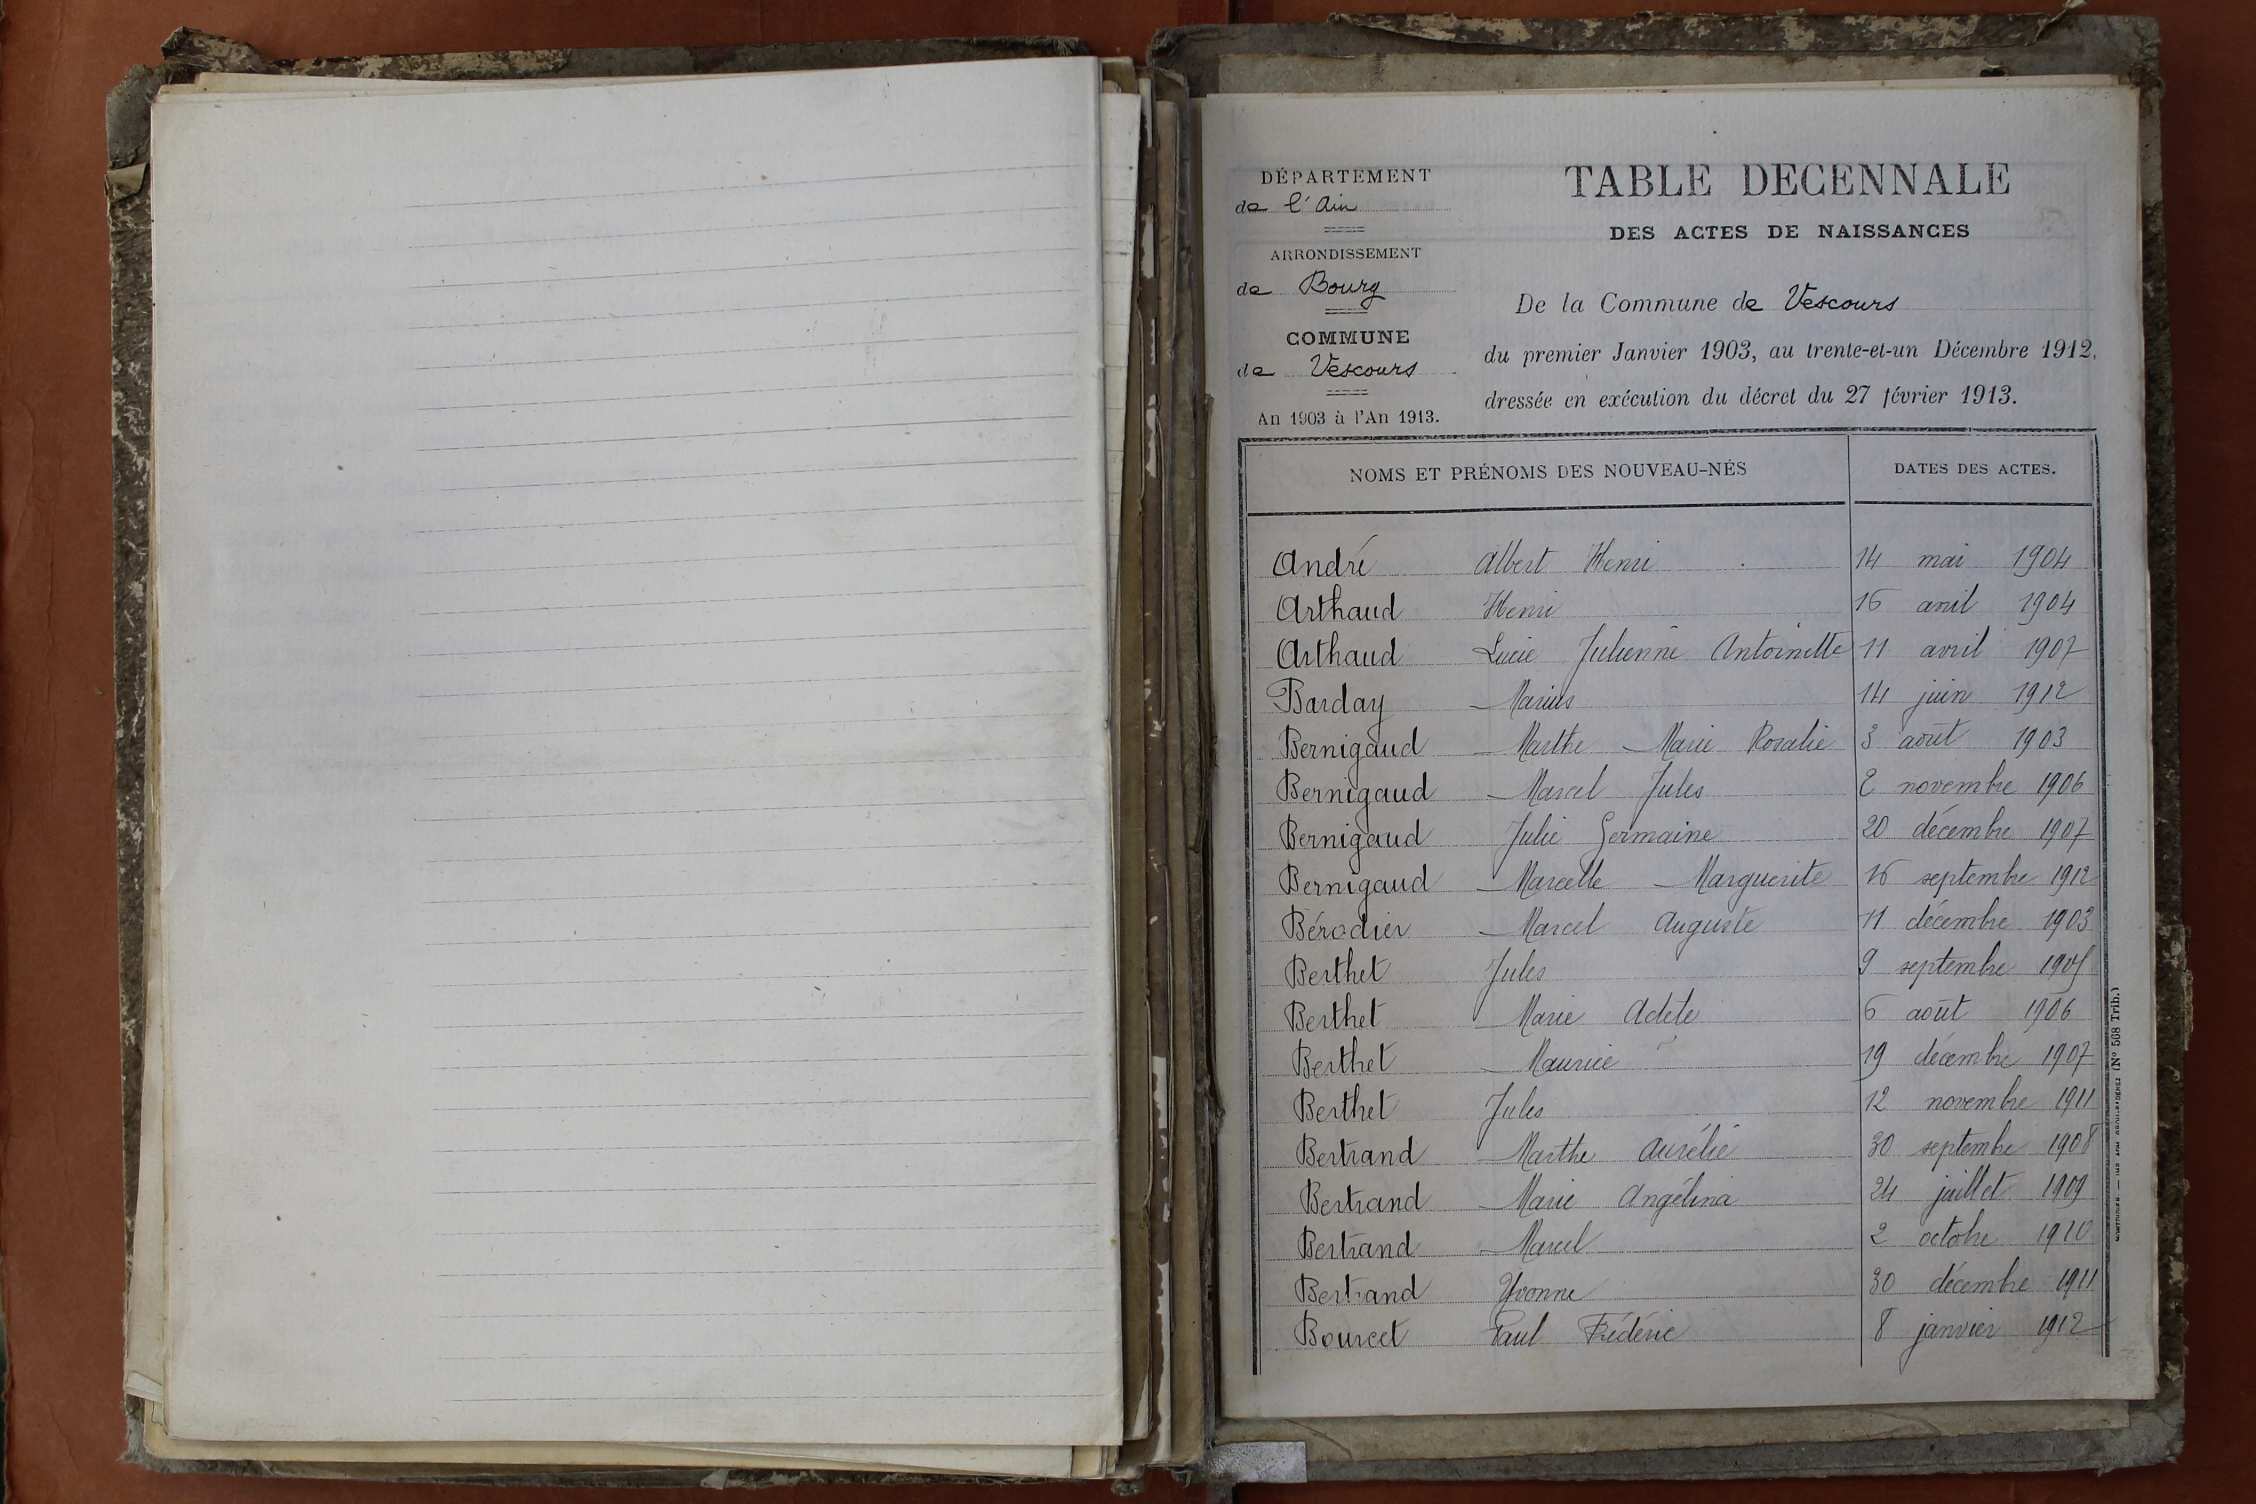 DÉPARTEMENT
de l'Ain
ARRONDISSEMENT
de Bourg
COMMUNE
de Vescours
An 1903 à l'An 1913.
TABLE DECENNALE
DES ACTES DE NAISSANCES
De la Commune de Vescours
du premier Janvier 1903, au trente-et-un Décembre 1912,
dressée en exécution du décret du 27 février 1913.
NOMS ET PRÉNOMS DES NOUVEAU-NÉS DATES DES ACTES.
André Albert Henri 14 mai 1904
Arthaud Henri 16 avril 1904
Arthaud Lucie Julienne Antoinette 11 avril 1907
Barday Marius 14 juin 1912
Bernigaud Marthe Marie Rosalie 3 août 1903
Bernigaud Marcel Jules 2 novembre 1906
Bernigaud Julie Germaine 20 décembre 1907
Bernigaud Marcelle Marguerite 16 septembre 1912
Bérodier Marcel Auguste 11 décembre 1903
Berthet Jules 9 septembre 1905
Berthet Marie Adèle 6 août 1906
Berthet Maurice 19 décembre 1907
Berthet Jules 12 novembre 1911
Bertrand Marthe Aurélie 30 septembre 1908
Bertrand Marie Angélina 24 juillet 1909
Bertrand Marcel 2 octobre 1910
Bertrand Yvonne 30 décembre 1911
Bourcet Paul Frédéric 8 janvier 1912
(N° 568 Trib.)